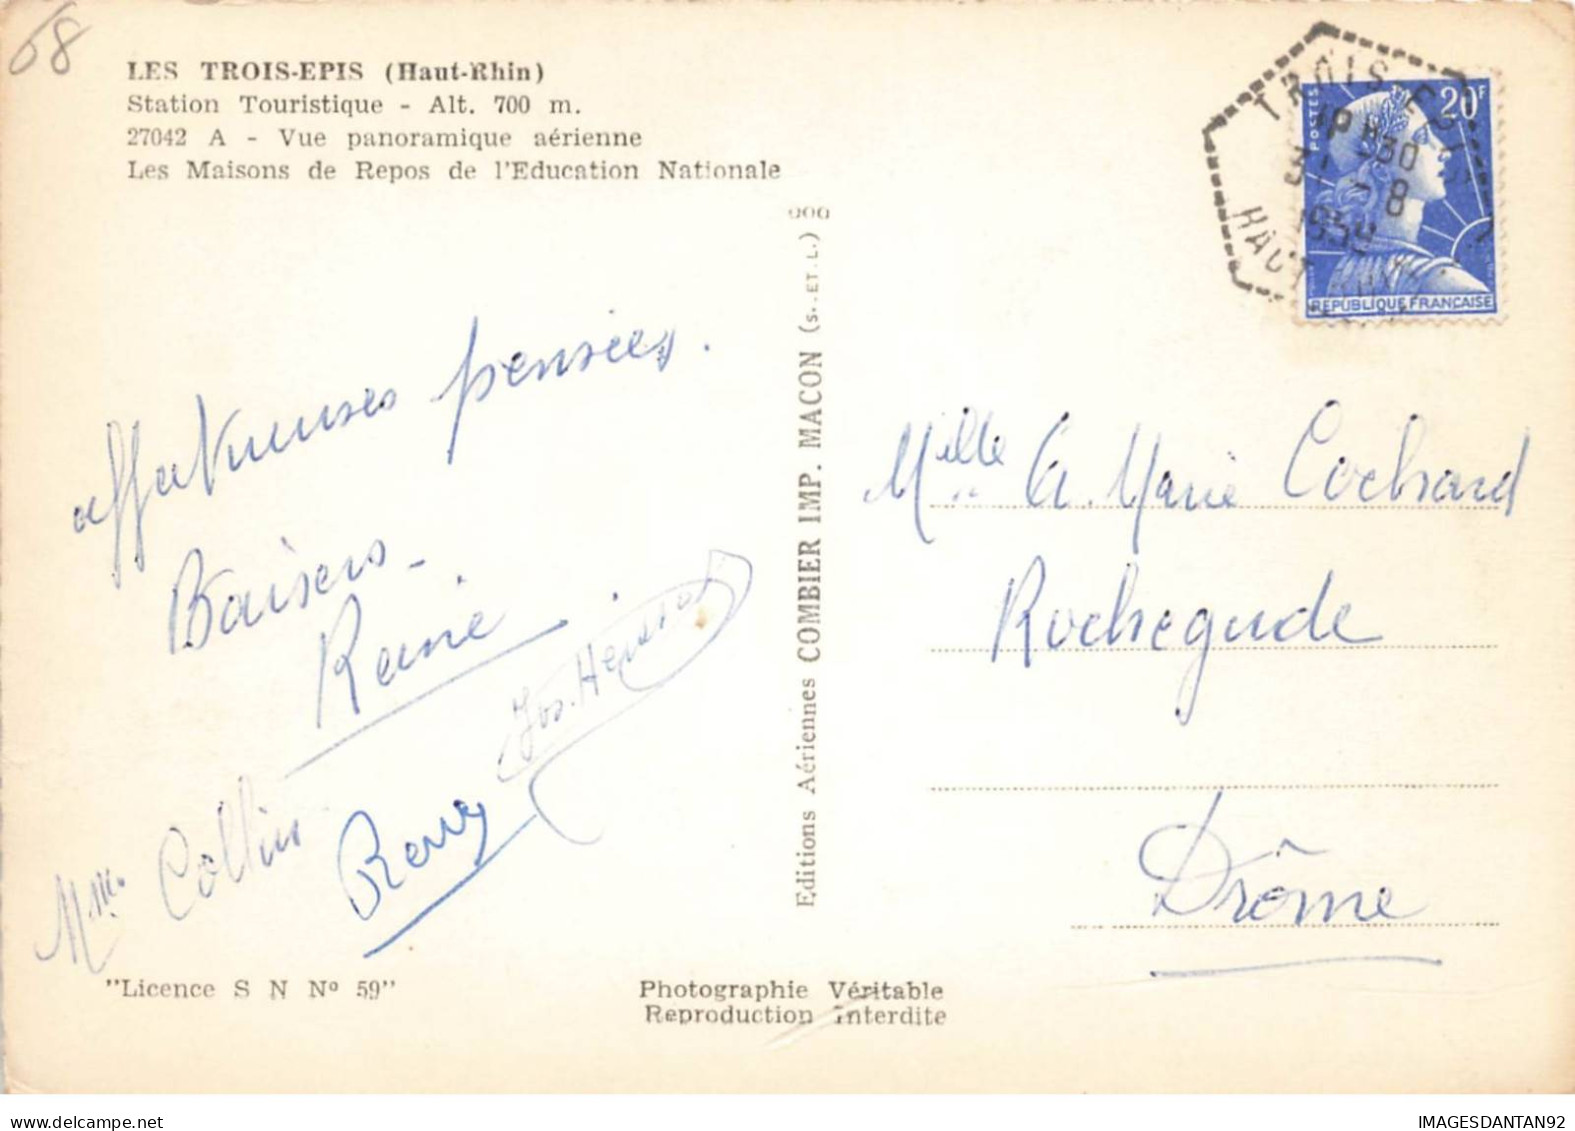 68
LES TROIS-EPIS (Haut-Rhin)
Station Touristique - Alt. 700 m.
27042 A - Vue panoramique aérienne
Les Maisons de Repos de l'Education Nationale
TROIS-EPIS
30
-8
HAUT-RHIN
POSTES
20F
REPUBLIQUE FRANÇAISE
affectueuses pensées.
Baisers -
Reine
Jos.
Mme. Collin
Remy
Editions Aériennes COMBIER IMP. MACON (S.-ET-L.)
Melle A. Marie Cochard
Rochegude
Drôme
"Licence S N No 59"
Photographie Véritable
Reproduction Interdite
delcampe.net
IMAGESDANTAN92